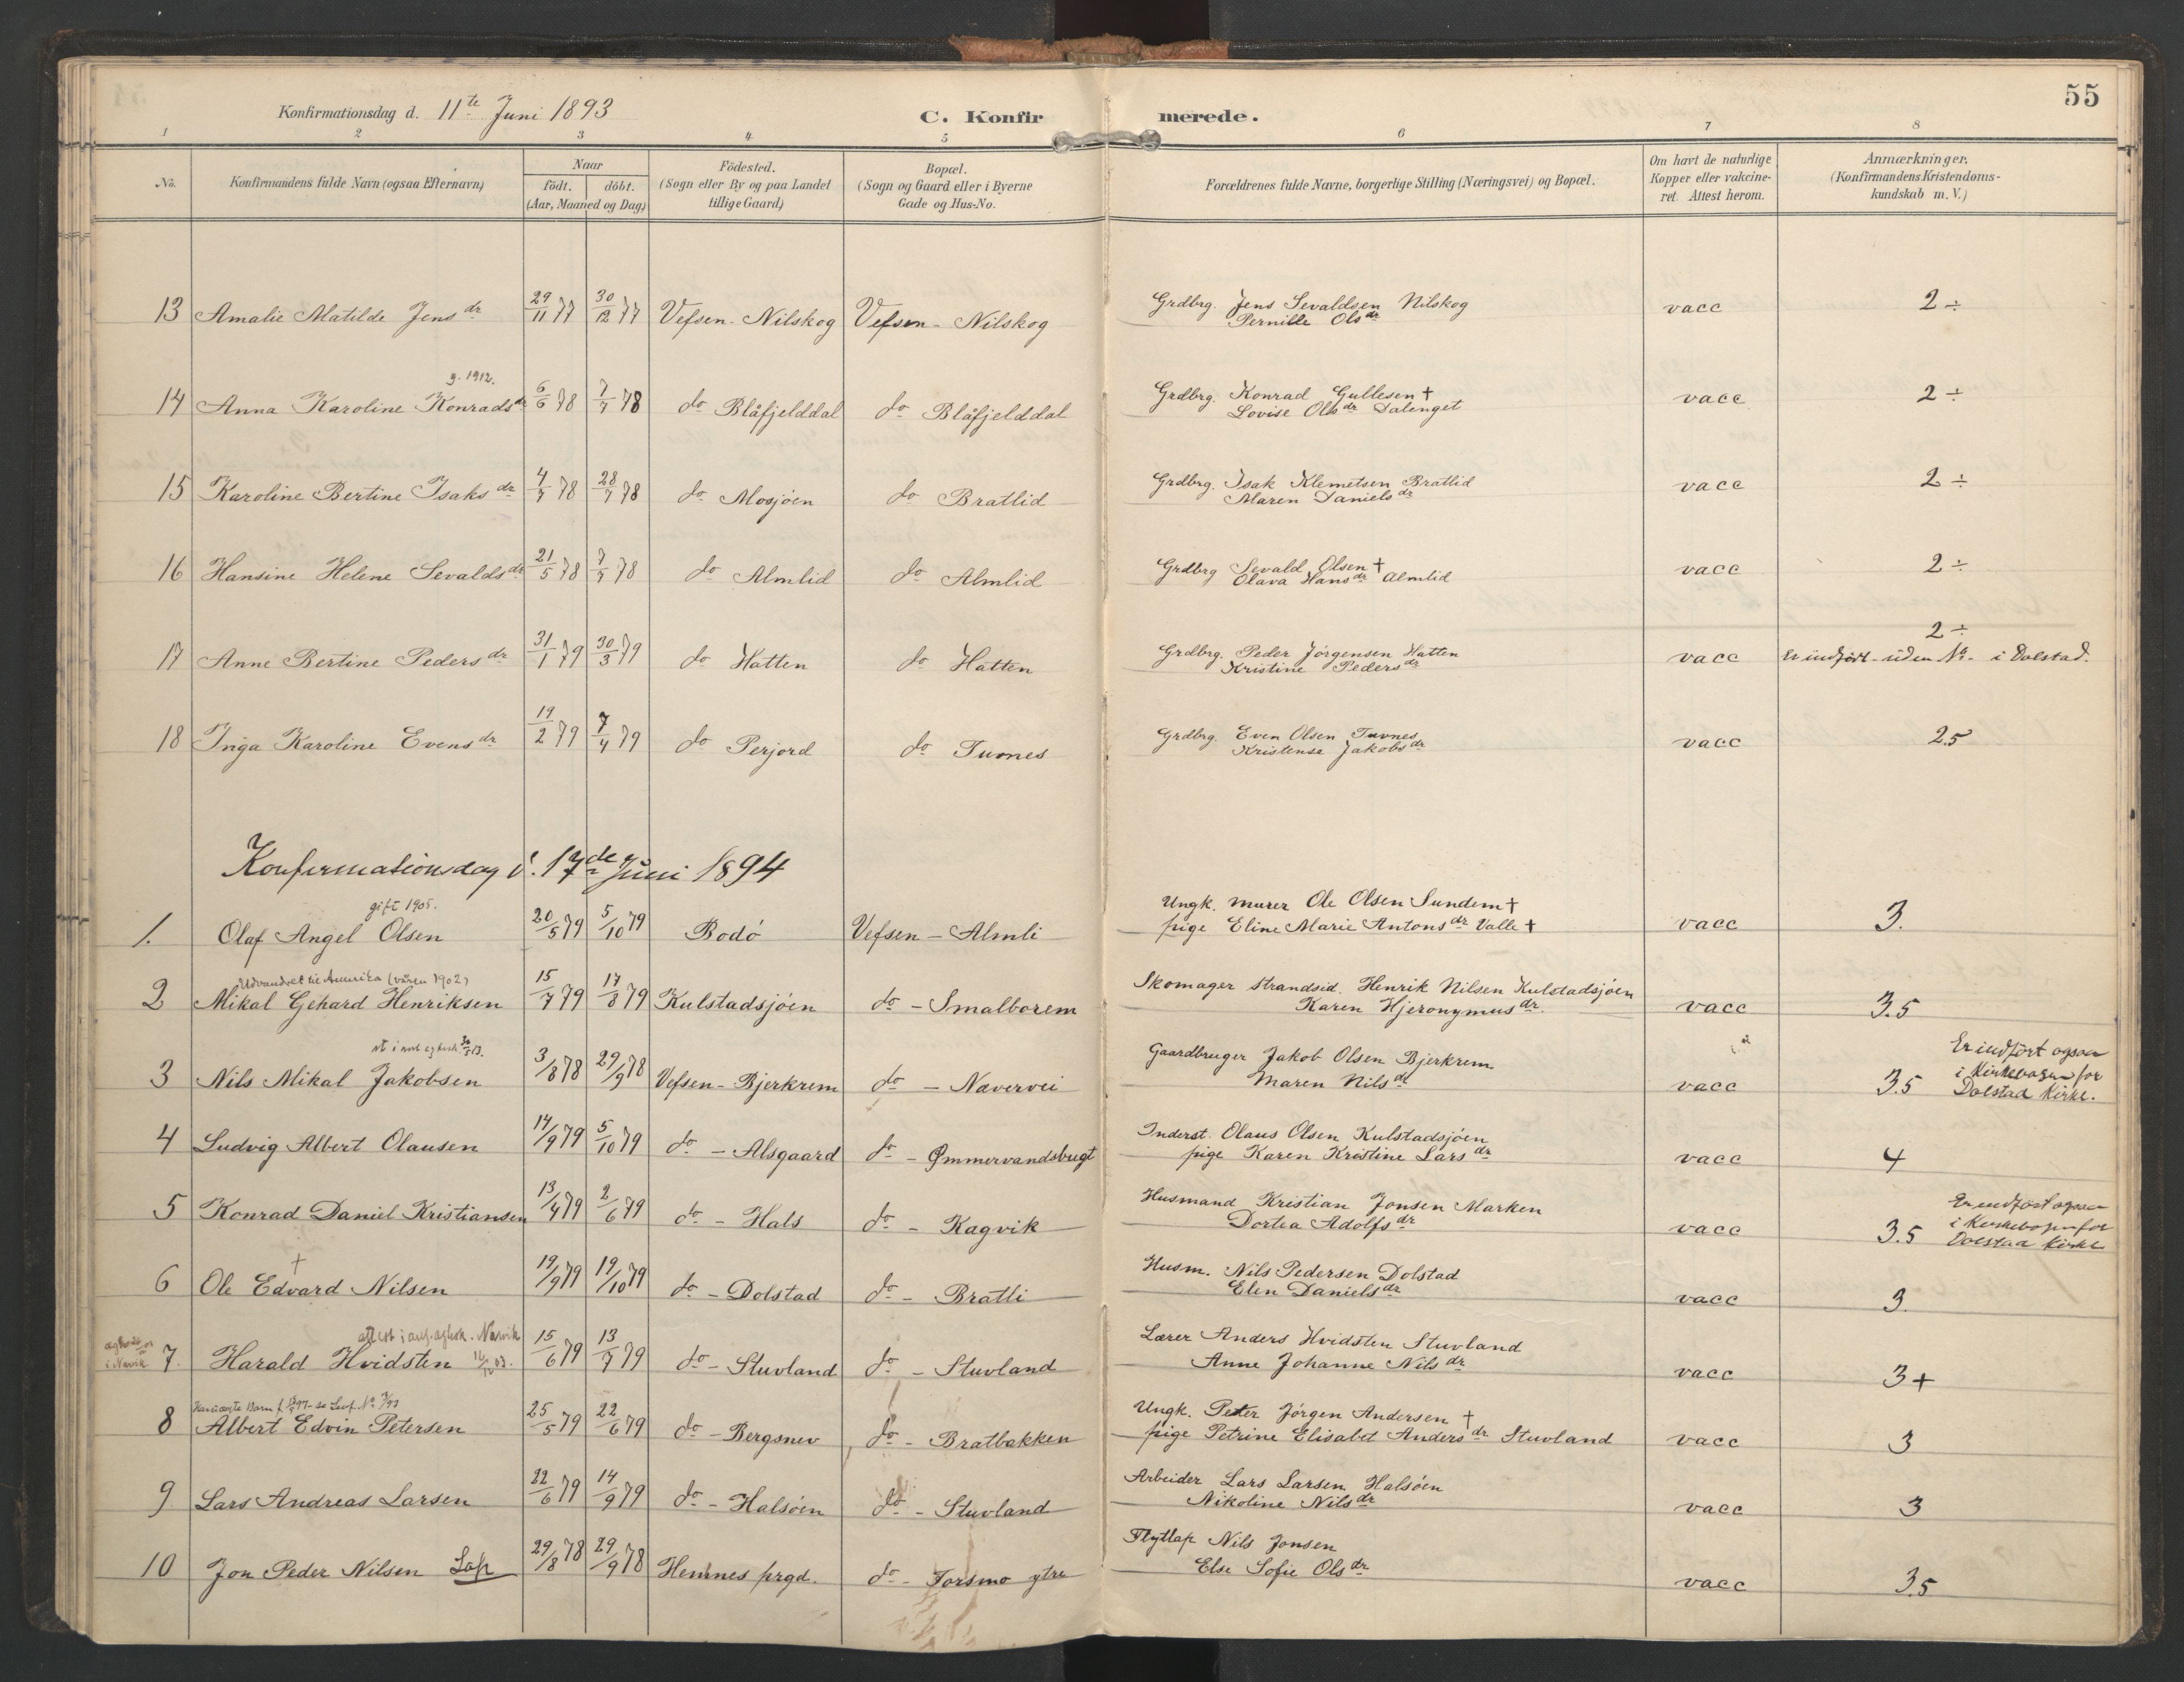 55
Konfirmationsdag d. 11te Juni 1893
C. Konfirmerede.
1 2 3 4 5 6 7 8
No. Konfirmandens fulde Navn (ogsaa Efternavn) Naar født. døbt. (Aar, Maaned og Dag) Födested. (Sogn eller By og paa Landet tillige Gaard) Bopæl. (Sogn og Gaard eller i Byerne Gade og Hus-No. Forældrenes fulde Navne, borgerlige Stilling (Næringsvei) og Bopæl. Om havt de naturlige Kopper eller vakcineret. Attest herom. Anmærkninger. (Konfirmandens Kristendomskundskab m. V.)
13 Amalie Matilde Jensdr 29/11 77 30/12 77 Vefsen - Nilskog Vefsen - Nilskog Grdbrg. Jens Sevaldsen Nilskog vacc 2 ÷
Pernille Olsdr
g. 1912.
14 Anna Karoline Konradsdr 6/6 78 7/7 78 do Blåfjelddal do Blåfjelddal Grdbrg. Konrad Gullesen † vacc 2 ÷
Lovise Olsdr Dalenget
15 Karoline Bertine Isaksdr 4/7 78 28/7 78 do Mosjöen do Bratlid Grdbrg. Isak Klemetsen Bratlid vacc 2 ÷
Maren Danielsdr
16 Hansine Helene Sevaldsdr 21/5 78 7/7 78 do Almlid do Almlid Grdbrg Sevald Olsen † vacc 2 ÷
Olava Hansdr Almlid
17 Anne Bertine Pedersdr 31/1 79 30/3 79 do Hatten do Hatten Grdbrg. Peder Jörgensen Hatten vacc 2 ÷
Kristine Pedersdr Er indført uden No. i Dolstad.
18 Inga Karoline Evensdr 19/2 79 7/4 79 do Perjord do Tuvnes Grdbrg. Even Olsen Tuvnes vacc 2.5
Kristense Jakobsdr
Konfirmationsdag d. 17de Juni 1894
gift 1905.
1. Olaf Angel Olsen 20/5 79 5/10 79 Bodö Vefsen - Almli Ungk. murer Ole Olsen Sundem † vacc 3.
pige Eline Marie Antonsdr Valle †
Udvandret til Amerika (våren 1902)
2 Mikal Gehard Henriksen 15/7 79 17/8 79 Kulstadsjöen do - Smalborem Skomager strandsid. Henrik Nilsen Kulstadsjöen vacc 3.5
Karen Hjeronymusdr.
3 Nils Mikal Jakobsen 3/8 78 29/9 78 Vefsen - Bjerkrem do - Nævervei Gaardbruger Jakob Olsen Bjerkrem vacc 3.5
Maren Nilsdr
Er indført ogsaa
i Kirkebogen for
Dolstad Kirke.
4 Ludvig Albert Olausen 14/9 79 5/10 79 do - Alsgaard do - Ømmervandsbugt Inderst. Olaus Olsen Kulstadsjöen vacc 4
pige Karen Kristine Larsdr
5 Konrad Daniel Kristiansen 13/4 79 2/6 79 do - Hals do - Kagvik Husmand Kristian Jonsen Marken vacc 3.5
Dortea Adolfsdr
Er indført ogsaa
i Kirkebogen for
Dolstad Kirke
†
6 Ole Edvard Nilsen 19/9 79 19/10 79 do - Dolstad do - Bratli Husm. Nils Pedersen Dolstad vacc 3.
Elen Danielsdr
Narvik
i Narvik 7. Harald Hvidsten 15/6 79 13/7 79 do - Stuvland do - Stuvland Lærer Anders Hvidsten Stuvland vacc 3+
Anne Johanne Nilsdr
8 Albert Edvin Petersen 25/5 79 22/6 79 do - Bergsnev do - Bratbakken Ungk. Peter Jörgen Andersen † vacc 3
pige Petrine Elisabet Andersdr Stuvland
9 Lars Andreas Larsen 22/6 79 14/9 79 do - Halsöen do - Stuvland Arbeider Lars Larsen Halsöen vacc 3
Nikoline Nilsdr
10 Jon Peder Nilsen Lap 29/8 78 29/9 78 Hemnes prgd. do - Forsmo ytre Flytlap Nils Jonsen vacc 3.5
Else Sofie Olsdr